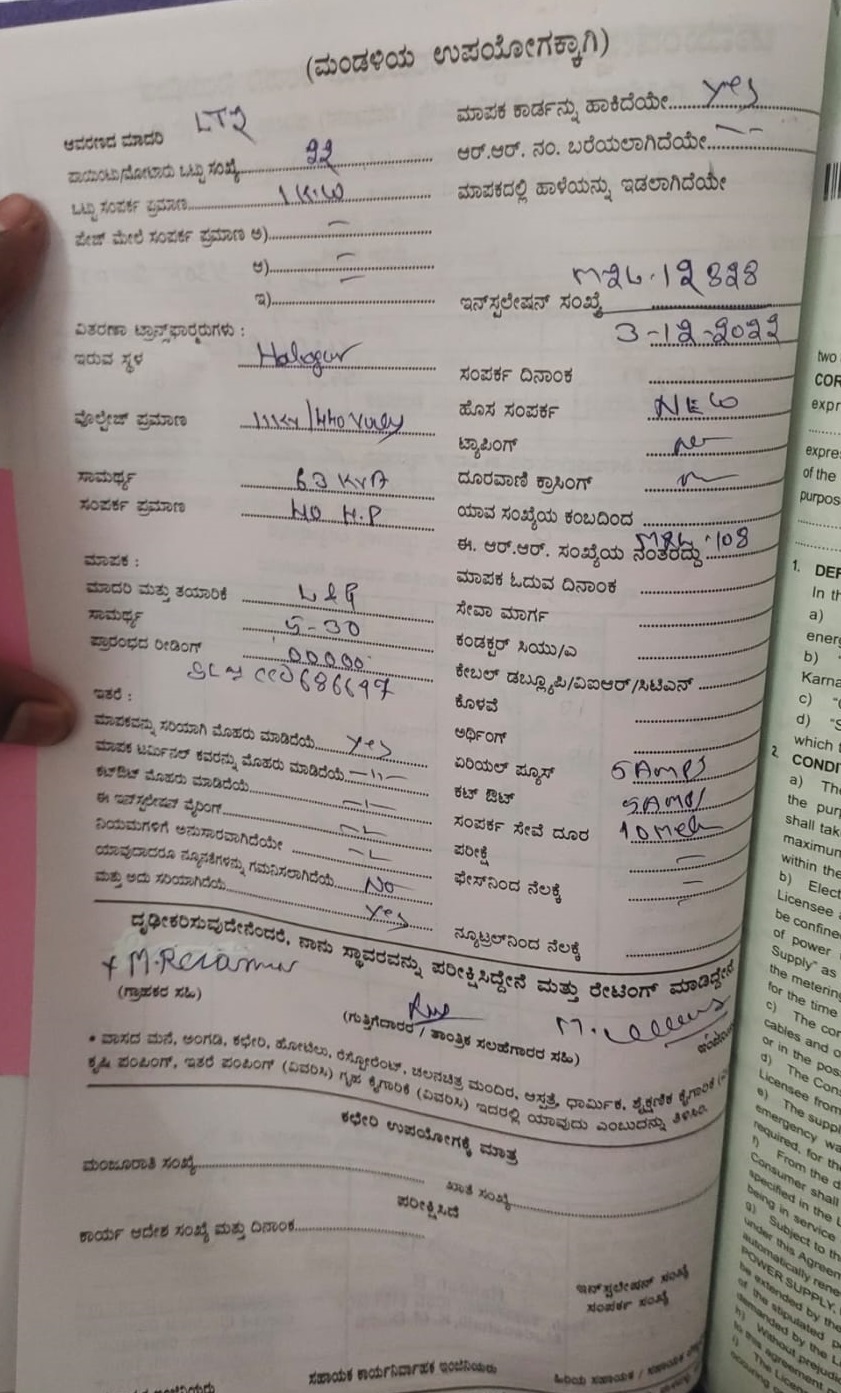 (ಮಂಡಳಿಯ ಉಪಯೋಗಕ್ಕಾಗಿ)
ಆವರಣದ ಮಾದರಿ LT2
ಪಾಯಿಂಟು/ಮೋಟಾರು ಒಟ್ಟು ಸಂಖ್ಯೆ
ಒಟ್ಟು ಸಂಪರ್ಕ ಪ್ರಮಾಣ 1 KW
ಪೇಜ್ ಮೇಲೆ ಸಂಪರ್ಕ ಪ್ರಮಾಣ ಅ)
ಆ)
ಇ)
ವಿತರಣಾ ಟ್ರಾನ್ಸ್‌ಫಾರ್ಮರುಗಳು :
ಇರುವ ಸ್ಥಳ Halogur
ವೊಲ್ಟೇಜ್ ಪ್ರಮಾಣ
ಸಾಮರ್ಥ್ಯ 63 KVA
ಸಂಪರ್ಕ ಪ್ರಮಾಣ H.P
ಮಾಪಕ :
ಮಾದರಿ ಮತ್ತು ತಯಾರಿಕೆ L & G
ಸಾಮರ್ಥ್ಯ 5-30
ಪ್ರಾರಂಭದ ರೀಡಿಂಗ್ 00000
ಇತರೆ :
ಮಾಪಕವನ್ನು ಸರಿಯಾಗಿ ಮೊಹರು ಮಾಡಿದೆಯೆ yes
ಮಾಪಕ ಟರ್ಮಿನಲ್ ಕವರನ್ನು ಮೊಹರು ಮಾಡಿದೆಯೆ —11—
ಕಟ್‌ಔಟ್ ಮೊಹರು ಮಾಡಿದೆಯೆ
ಈ ಇನ್‌ಸ್ಟಲೇಷನ್ ವೈರಿಂಗ್
ನಿಯಮಗಳಿಗೆ ಅನುಸಾರವಾಗಿದೆಯೇ
ಯಾವುದಾದರೂ ನ್ಯೂನತೆಗಳನ್ನು ಗಮನಿಸಲಾಗಿದೆಯೆ No
ಮತ್ತು ಅದು ಸರಿಯಾಗಿದೆಯೆ Yes
ಮಾಪಕ ಕಾರ್ಡನ್ನು ಹಾಕಿದೆಯೇ yes
ಆರ್.ಆರ್. ನಂ. ಬರೆಯಲಾಗಿದೆಯೇ
ಮಾಪಕದಲ್ಲಿ ಹಾಳೆಯನ್ನು ಇಡಲಾಗಿದೆಯೇ
ಇನ್‌ಸ್ಟಲೇಷನ್ ಸಂಖ್ಯೆ
3-12-2022
ಸಂಪರ್ಕ ದಿನಾಂಕ
ಹೊಸ ಸಂಪರ್ಕ NEW
ಟ್ಯಾಪಿಂಗ್
ದೂರವಾಣಿ ಕ್ರಾಸಿಂಗ್
ಯಾವ ಸಂಖ್ಯೆಯ ಕಂಬದಿಂದ
ಈ. ಆರ್.ಆರ್. ಸಂಖ್ಯೆಯ ನಂತರದ್ದು
ಮಾಪಕ ಓದುವ ದಿನಾಂಕ
ಸೇವಾ ಮಾರ್ಗ
ಕಂಡಕ್ಟರ್ ಸಿಯು/ಎ
ಕೇಬಲ್ ಡಬ್ಲ್ಯೂಪಿ/ವಿಐಆರ್/ಸಿಟಿಎನ್
ಕೊಳವೆ
ಅರ್ಥಿಂಗ್
ಏರಿಯಲ್ ಫ್ಯೂಸ್ 5 Amps
ಕಟ್ ಔಟ್ 5 Amps
ಸಂಪರ್ಕ ಸೇವೆ ದೂರ
ಪರೀಕ್ಷೆ
ಫೇಸ್‌ನಿಂದ ನೆಲಕ್ಕೆ
ನ್ಯೂಟ್ರಲ್‌ನಿಂದ ನೆಲಕ್ಕೆ
ದೃಢೀಕರಿಸುವುದೇನೆಂದರೆ, ನಾನು ಸ್ಥಾವರವನ್ನು ಪರೀಕ್ಷಿಸಿದ್ದೇನೆ ಮತ್ತು ರೇಟಿಂಗ್ ಮಾಡಿದ್ದೇನೆ
(ಗ್ರಾಹಕರ ಸಹಿ)
(ಗುತ್ತಿಗೆದಾರರ / ತಾಂತ್ರಿಕ ಸಲಹೆಗಾರರ ಸಹಿ)
• ವಾಸದ ಮನೆ, ಅಂಗಡಿ, ಕಛೇರಿ, ಹೋಟೆಲು, ರೆಸ್ಟೋರೆಂಟ್, ಚಲನಚಿತ್ರ ಮಂದಿರ, ಆಸ್ಪತ್ರೆ, ಧಾರ್ಮಿಕ, ಶೈಕ್ಷಣಿಕ ಕೈಗಾರಿಕೆ
ಕೃಷಿ ಪಂಪಿಂಗ್, ಇತರೆ ಪಂಪಿಂಗ್ (ವಿವರಿಸಿ) ಗೃಹ ಕೈಗಾರಿಕೆ (ವಿವರಿಸಿ) ಇದರಲ್ಲಿ ಯಾವುದು ಎಂಬುದನ್ನು ತಿಳಿಸಿರಿ.
ಕಛೇರಿ ಉಪಯೋಗಕ್ಕೆ ಮಾತ್ರ
ಮಂಜೂರಾತಿ ಸಂಖ್ಯೆ
ಖಾತೆ ಸಂಖ್ಯೆ
ಪರೀಕ್ಷಿಸಿದೆ
ಕಾರ್ಯ ಆದೇಶ ಸಂಖ್ಯೆ ಮತ್ತು ದಿನಾಂಕ
ಇನ್‌ಸ್ಟಲೇಷನ್ ಸಂಖ್ಯೆ
ಸಂಪರ್ಕ ಸಂಖ್ಯೆ
ಸಹಾಯಕ ಕಾರ್ಯನಿರ್ವಾಹಕ ಇಂಜಿನಿಯರು
ಹಿರಿಯ ಸಹಾಯಕ / ಸಹಾಯಕ
two
COR
expr
expre
of the
purpos
1. DEF
In th
a)
energ
b)
Karna
c)
d)
which
2. CONDI
a) The
the pur
shall tak
maximun
within the
b) Elect
Licensee
be confine
of power
Supply" as
the metering
for the time
c) The cor
cables and o
or in the pos
d) The Cons
Licensee from
e) The suppl
emergency wa
required, for th
f) From the d
Consumer shall
specified in the
being in service
g) Subject to th
under this Agreen
automatically rene
POWER SUPPLY,
be extended by the
of the stipulated p
demanded by the L
h) Without prejudi
to this agreement
i) The Licen